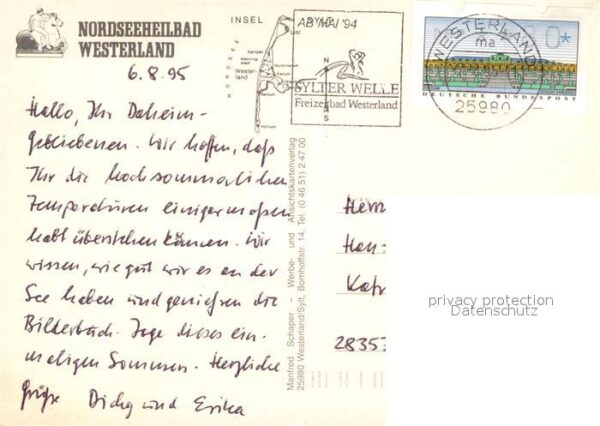 NORDSEEHEILBAD
WESTERLAND
6.8.95
Hallo, Ihr Daheim-
gebliebenen. Wir hoffen, daß
Ihr die hochsommerlichen
Temperaturen einigermaßen
habt überstehen können. Wir
wissen, wie gut wir es an der
See haben und genießen die
Bilderbuch-Tage dieses ein-
maligen Sommers. Herzliche
Grüße und Erika
INSEL
NORDSEE
Wester-
land
AB MAI '94
SYLTER WELLE
Freizeitbad Westerland
WESTERLAND
ma
25980
0*
DEUTSCHE BUNDESPOST
Manfred Schaper - Werbe- und Ansichtskartenverlag
25980 Westerland/Sylt, Bomhoffstr. 14, Tel. (0 46 51) 2 47 00
Herrn
Han
Kat
28353
privacy protection
Datenschutz